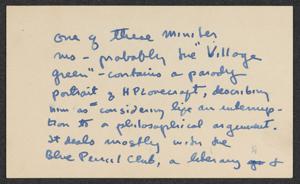 one of these minder
ms - probably the "Village
green" - contains a parody
portrait of HPLovecraft, describing
him as "considering life an interrup-
tion to a philosophical argument.
It deals mostly with the
Blue Pencil Club, a literary of